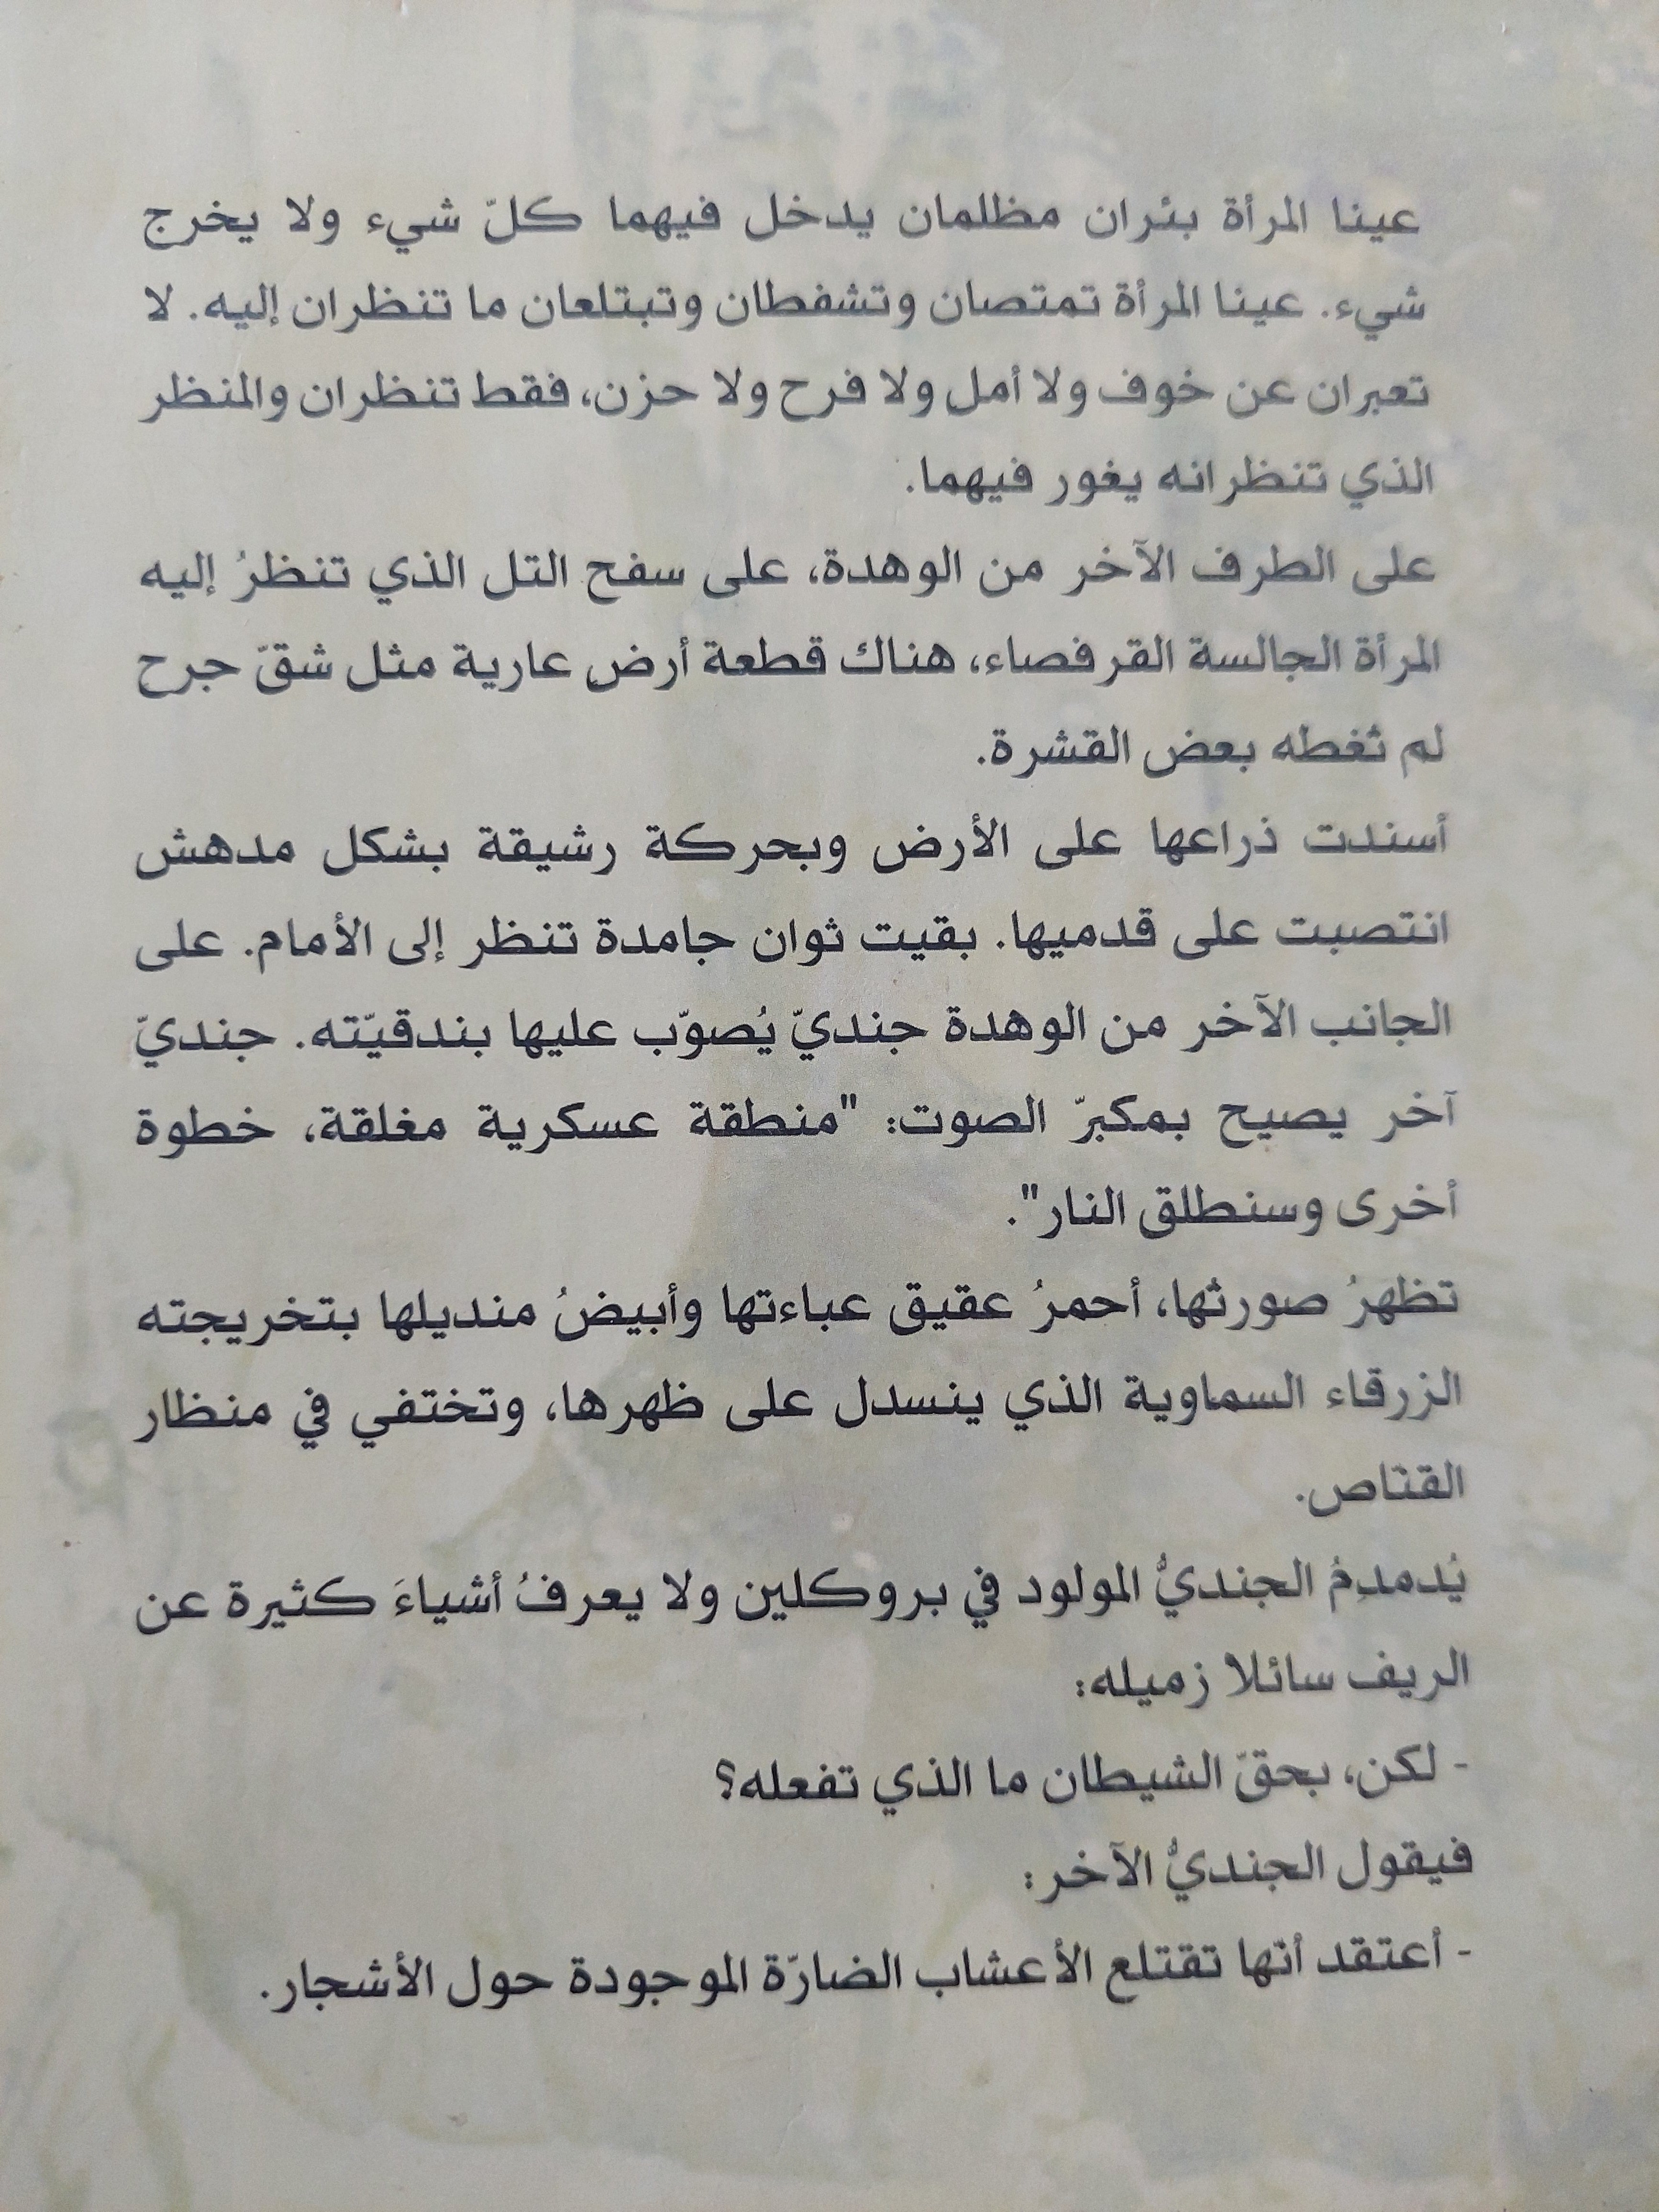 عينا المرأة بئران مظلمان يدخل فيهما كلّ شيء ولا يخرج
شيء. عينا المرأة تمتصان وتشفطان وتبتلعان ما تنظران إليه. لا
تعبران عن خوف ولا أمل ولا فرح ولا حزن، فقط تنظران والمنظر
الذي تنظرانه يغور فيهما.
على الطرف الآخر من الوهدة، على سفح التل الذي تنظرُ إليه
المرأة الجالسة القرفصاء، هناك قطعة أرض عارية مثل شقّ جرح
لم تُغطه بعض القشرة.
أسندت ذراعها على الأرض وبحركة رشيقة بشكل مدهش
انتصبت على قدميها. بقيت ثوان جامدة تنظر إلى الأمام. على
الجانب الآخر من الوهدة جنديّ يُصوّب عليها بندقيّته. جنديّ
آخر يصيح بمكبرّ الصوت: "منطقة عسكرية مغلقة، خطوة
أخرى وسنطلق النار".
تظهرُ صورتُها، أحمرُ عقيق عباءتها وأبيضُ منديلها بتخريجته
الزرقاء السماوية الذي ينسدل على ظهرها، وتختفي في منظار
القنّاص.
يُدمدِمُ الجنديُّ المولود في بروكلين ولا يعرفُ أشياءَ كثيرة عن
الريف سائلا زميله:
- لكن، بحقّ الشيطان ما الذي تفعله؟
فيقول الجنديُّ الآخر:
- أعتقد أنّها تقتلع الأعشاب الضارّة الموجودة حول الأشجار.